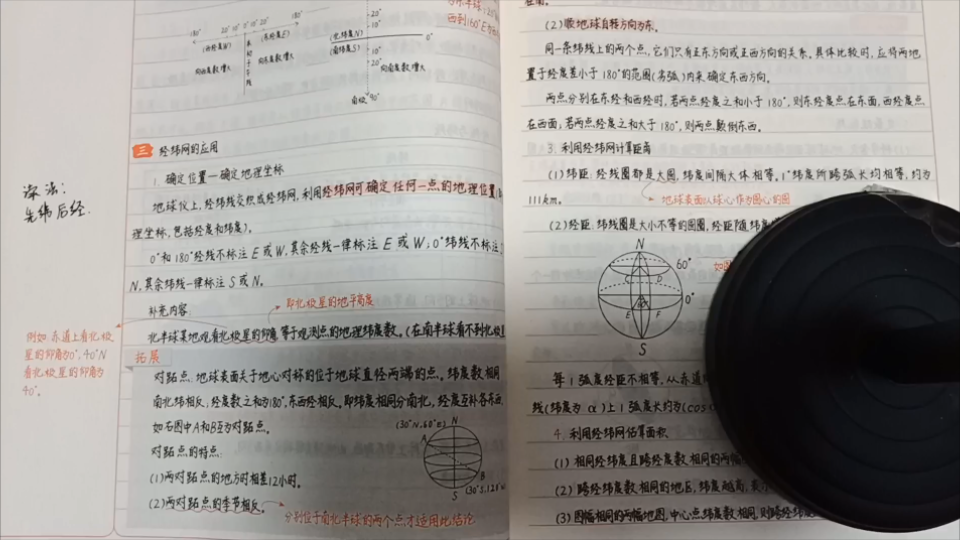 180° 20° 10° 0° 10° 20° 180°
(西经度W) (东经度E)
本初子午线
向西度数增大 向东度数增大
20°
10°
(北纬度N) 0°
(南纬度S)
10°
20° 向南度数增大
南极 90°
西到160°E为
三 经纬网的应用
1. 确定位置—确定地理坐标
地球仪上,经纬线交织成经纬网,利用经纬网可确定任何一点的地理位置
理坐标,包括经度和纬度)。
0°和180°经线不标注E或W,其余经线一律标注E或W;0°纬线不标注
N,其余纬线一律标注S或N。
补充内容:
即北极星的地平高度
北半球某地观看北极星的仰角等于观测点的地理纬度数。(在南半球看不到北极星
拓展
对跖点:地球表面关于地心对称的位于地球直径两端的点。纬度数相同
南北纬相反;经度数之和为180°,东西经相反。即纬度相同分南北,经度互补各东西
如右图中A和B互为对跖点。
(30°N,60°E) N
A
B
S (30°S,120°W
对跖点的特点:
(1)两对跖点的地方时相差12小时。
(2)两对跖点的季节相反。
分别位于南北半球的两个点才适用此结论
读法:
先纬后经.
例如:赤道上看北极
星的仰角为0°,40°N
看北极星的仰角为
40°。
(2)顺地球自转方向为东。
同一条纬线上的两个点,它们只有正东方向或正西方向的关系。具体比较时,应将两地
置于经度差小于180°的范围(劣弧)内来确定东西方向。
两点分别在东经和西经时,若两点经度之和小于180°,则东经度点在东面,西经度点
在西面;若两点经度之和大于180°,则两点颠倒东西。
3. 利用经纬网计算距离
(1)纬距:经线圈都是大圆,纬度间隔大体相等,1°纬度所跨弧长均相等,约为
111km。
地球表面以球心作为圆心的圆
(2)经距:纬线圈是大小不等的圆圈,经距随纬度
N
60°
C D
0°
E F
S
如图
每1°弧度经距不相等,从赤道
线(纬度为α)上1°弧度长约为(cos
4. 利用经纬网估算面积
(1)相同经纬度且跨经度数相同的两幅
(2)跨经纬度数相同的地区,纬度越高,表示
(3)图幅相同的两幅地图,中心点纬度数相同,则跨经纬